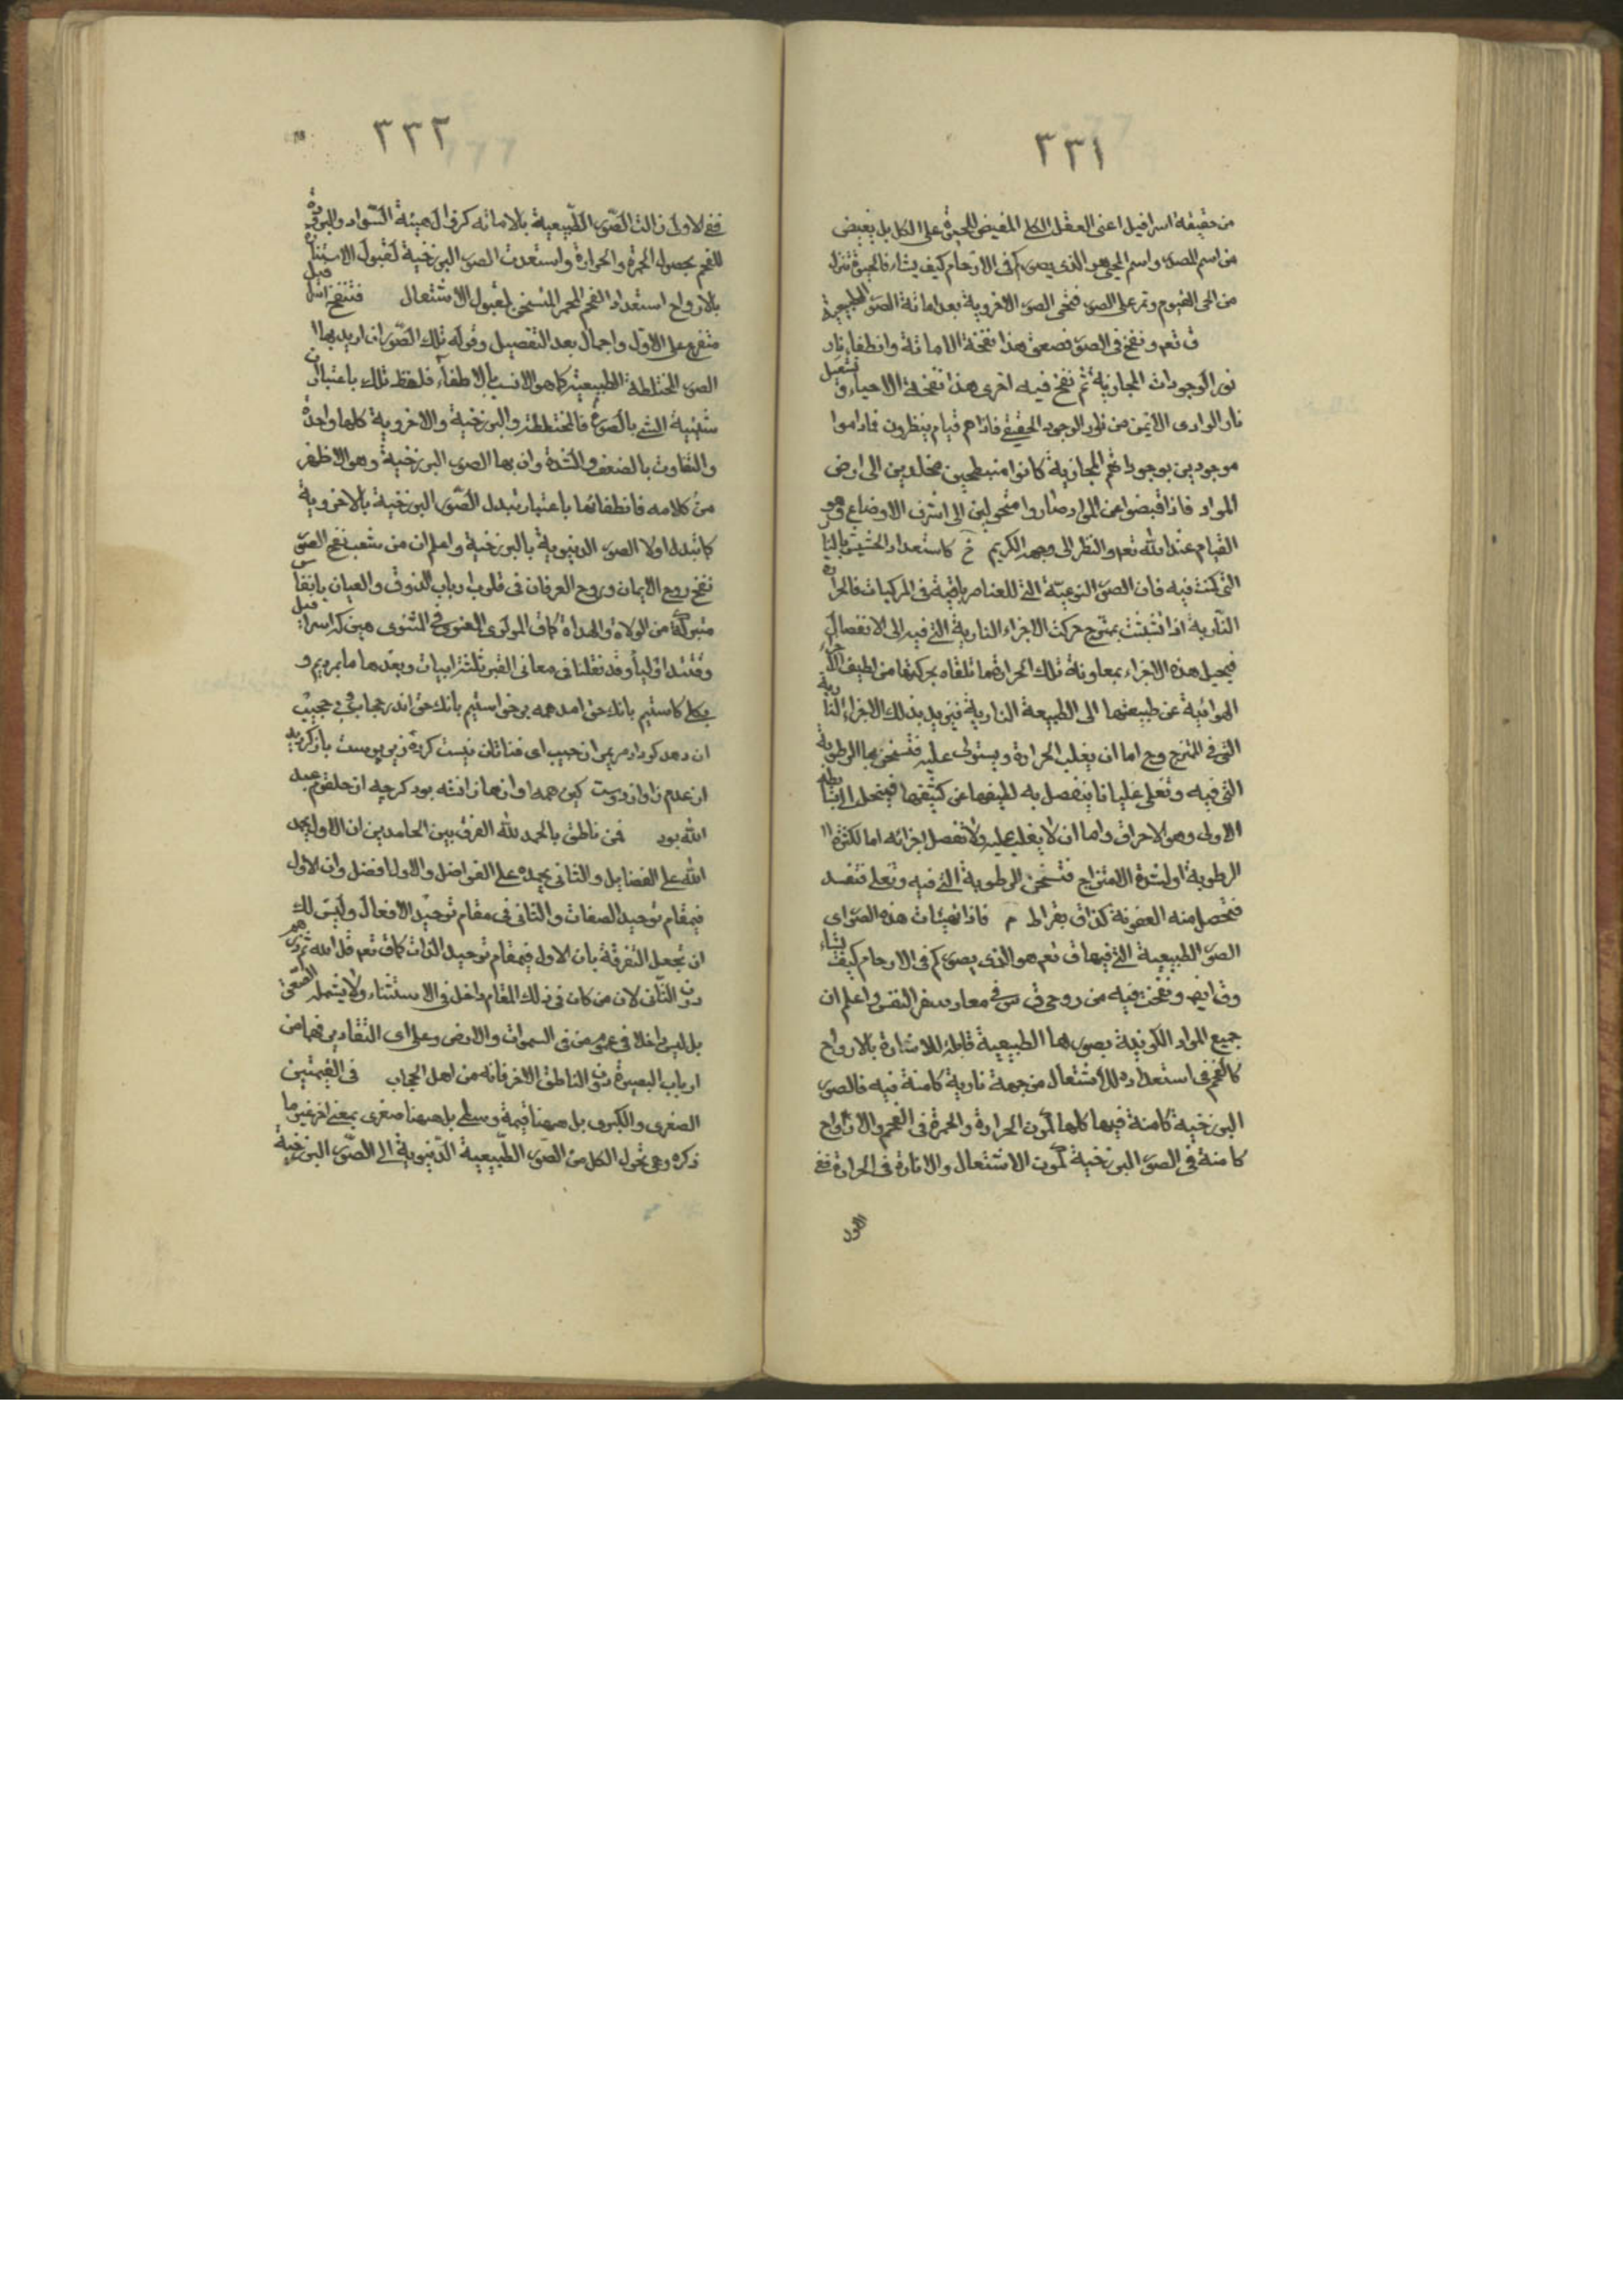 ٣٣١
من حقيقة اسرافيل اعنى العقل الكلى المفيض للحيوة على الكل بل يفيض
من اسم المصور واسم المحيى هو الذى يصوركم فى الارحام كيف يشاء فالحيوة تنزل
من الحى القيوم وتمر على الصور فتحيى الصور الاخروية بعد اماتة الصور الطبيعية
ق تعم ونفخ فى الصور فصعق هذا نفخة الاماتة وانطفاء نار
نور الوجودات المجازية ثم نفخ فيه اخرى هذا نفخة الاحياء و تشتعل
نار الوادى الايمن من نار الوجود الحقيقى فاذاهم قيام ينظرون فماداموا
موجودين بوجوداتهم المجازية كانوا منبطحين مخلدين الى ارض
المواد فاذا قبضوا عن المواد صاروا متحولين الى اشرف الاوضاع وهو
القيام عند الله تعم والنظر الى وجهه الكريم خ كاستعداد الخشب بالنار
التى كمنت فيه فان الصور النوعية التى للعناصر باقية فى المركبات فالحرارة
النارية اذا تشبثت بممتزج حركت الاجزاء النارية التى فيه الى الانفصال
فيحيل هذه الاجزاء بمعاونة تلك الحرارة ما تلقاه بحركتها من لطيف الاجزاء
الهوائية عن طبيعتها الى الطبيعة النارية فيزيد بذلك الاجزاء النارية
التى فى الممتزج وح اما ان يغلب الحرارة ويستولى عليه فتسخن بها الرطوبة
التى فيه وتغلى غليانا ينفصل به لطيفها عن كثيفها فينحل
الاولى وهو الاحراق واما ان لا يغلب عليه ولا تفصل اجزائه اما لكثرة
الرطوبة او لشدة الامتزاج فتسخن الرطوبة التى فيه وتغلى فتفسد
فتحصل منه العفونة كذا ق بقراط م فاذا تهيئات هذه الصور اى
الصور الطبيعية التى فيها ق تعم هو الذى يصوركم فى الارحام كيف يشاء
وق ايضا ونفخت فيه من روحى ق س فى معاد سفر النفس واعلم ان
جميع المواد الكونية بصورها الطبيعية قابلة للاستنارة بالارواح
كالفحم فى استعداده للاشتعال من جهة نارية كامنة فيه فالصور
البرزخية كامنة فيها كلها كمون الحرارة والحمرة فى الفحم والارواح
كامنة فى الصور البرزخية كمون الاشتعال والانارة فى الحرارة ففى
الاول
٣٣٢
ففى الاول زالت الصور الطبيعية بالاماتة كزوال هيئة السواد والبرودة
للفحم بحصول الحمرة والحرارة واستعدت الصور البرزخية لقبول الاستنارة
بالارواح استعداد الفحم المحمر المتسخن لقبول الاشتعال فتنفخ اسرافيل
متفرع على الاول واجمال بعد التفصيل وقوله تلك الصور ان اريد بها
الصور المختلطة الطبيعية كما هو الانسب بالاطفاء فلفظ تلك باعتبار ان
شيئية الشئ بالصورة فالمختلطة والبرزخية والاخروية كلها واحدة
والتفاوت بالضعف والشدة وان بها الصور البرزخية وهو الاظهر
من كلامه فانطفائها باعتبار تبدل الصور البرزخية بالاخروية
كما تبدل اولا الصور الدنيوية بالبرزخية واعلم ان من شعب نفخ الصور
نفخ روح الايمان وروح العرفان فى قلوب ارباب الذوق والعيان بانفاس
متبركة من الولاة والهداة كما ق المولوى المعنوى فى المثنوى هين كه اسرافيل
وقتند اوليا وقد نقلنا فى معانى القبر ثلثة ابيات وبعدها ما بمرديم و
بكلى كاستيم بانك حق امد همه برخواستيم بانك حق اندر حجاب و بى حجيب
ان دهد كو داد مريم را ز جيب اى فناتان نيست كرده زير پوست باز كرديد
از عدم ز اواز دوست كين همه اوازها از شه بود كرچه از حلقوم عبد
الله بود فمن ناطق بالحمد لله الفرق بين الحامدين ان الاول يحمد
الله على الفضايل والثانى يحمده على الفواضل والاول افضل وان الاول
فى مقام توحيد الصفات والثانى فى مقام توحيد الافعال وليس لك
ان تجعل التفرقة بان الاول فى مقام توحيد الذات كما ق تعم قل الله ثم ذرهم
دون الثانى لان من كان فى ذلك المقام داخل فى الاستثناء ولا يشمله الصعق
بل ليس داخلا فى عموم من فى السموات والارض وعلى اى التقادير فهما من
ارباب البصيرة دون الناطق الاخر فانه من اهل الحجاب فى القيمتين
الصغرى والكبرى بل ههنا قيمة وسطى بل ههنا صغرى بمعنى اخر غير ما
ذكره وهى تحول الكل من الصور الطبيعية الدنيوية الى الصور البرزخية